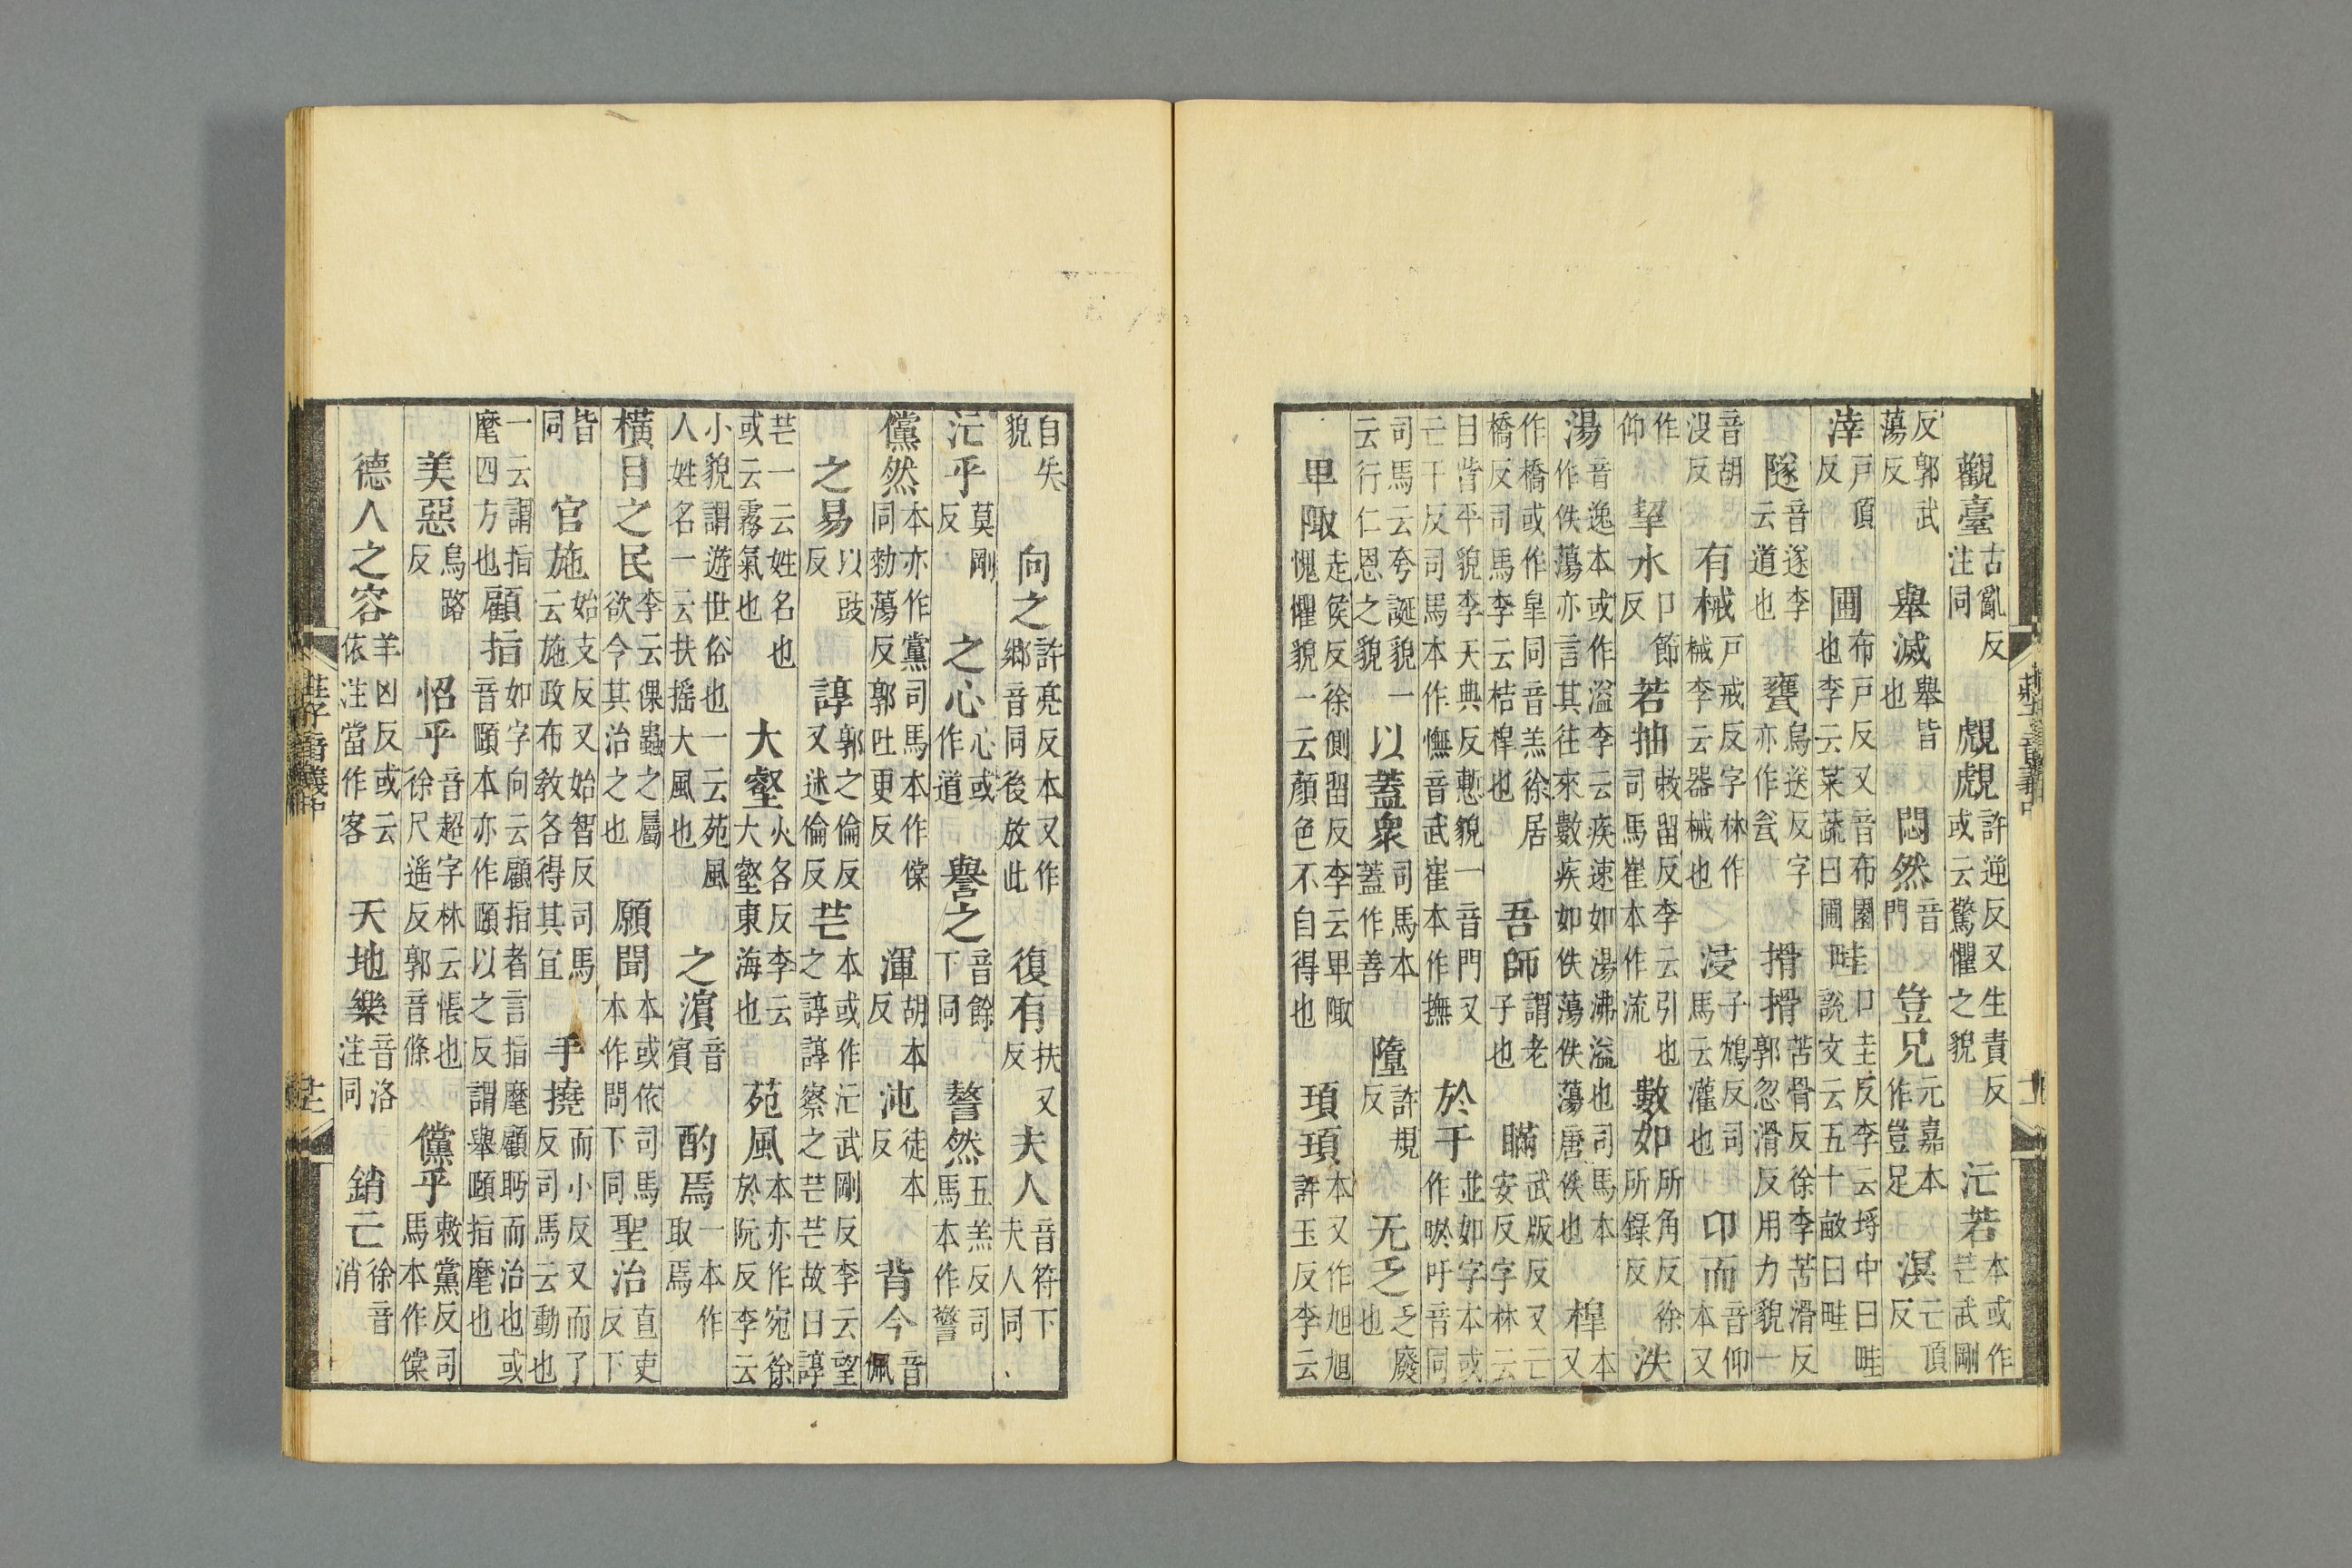 觀臺古亂反注同覤覤許逆反又生責反或云驚懼之貌汒若本或作芒武剛
反郭武蕩反舉滅舉皆也悶然音門豈兄元嘉本作豈足溟亡頂反
涬戶頂反圃布戶反又音布園也李云菜蔬曰圃畦口圭反李云埒中曰畦說文云五十畝曰畦
隧音遂李云道也甕烏送反字亦作瓮搰搰苦骨反徐李苦滑反郭忽滑反用力貌一
音胡沒反有械戶戒反字林作械李云器械也浸子鴆反司馬云灌也卬而音仰本又
作仰挈水口節反若抽敕留反李云引也司馬崔本作流數如所角反徐所錄反泆
湯音逸本或作溢李云疾速如湯沸溢也司馬本作佚蕩亦言其往來數疾如佚蕩佚蕩唐佚也槔本又
作橋或作皐同音羔徐居橋反司馬李云桔槔也吾師謂老子也瞞武版反又亡安反字林云
目眥平貌李天典反慙貌一音門又亡干反司馬本作憮音武崔本作撫於于並如字本或作唹吁音同
司馬云夸誕貌一云行仁恩之貌以蓋衆司馬本蓋作善墮許規反无乏乏廢也
卑陬走侯反徐側留反李云卑陬愧懼貌一云顏色不自得也頊頊本又作旭旭許玉反李云
莊子音義中 十一
自失貌向之許亮反本又作鄉音同後放此復有扶又反夫人音符下夫人同
汒乎莫剛反之心心或作道譽之音餘下同謷然五羔反司馬本作警
儻然本亦作黨司馬本作儻同勑蕩反郭吐更反渾胡本反沌徒本反背今音佩
之易以豉反諄郭之倫反又述倫反芒本或作汒武剛反李云望之諄諄察之芒芒故曰諄
芒一云姓名也或云霧氣也大壑火各反李云大壑東海也苑風本亦作宛徐於阮反李云
小貌謂遊世俗也一云苑風人姓名一云扶搖大風也之濱音賓酌焉一本作取焉
橫目之民李云倮蟲之屬欲令其治之也願聞本或作問下同本或依司馬聖治直吏反下
皆同官施始支反又始智反司馬云施政布教各得其宜手撓而小反又而了反司馬云動也
一云謂指麾四方也顧指如字向云顧指者言指麾顧眄而治也或音頤本亦作頤以之反謂舉頤指麾也
美惡烏路反怊乎音超字林云悵也徐尺遥反郭音條儻乎敕黨反司馬本作儻
德人之容羊凶反或云依注當作客天地樂音洛注同銷亡徐音消
莊子音義中 十二